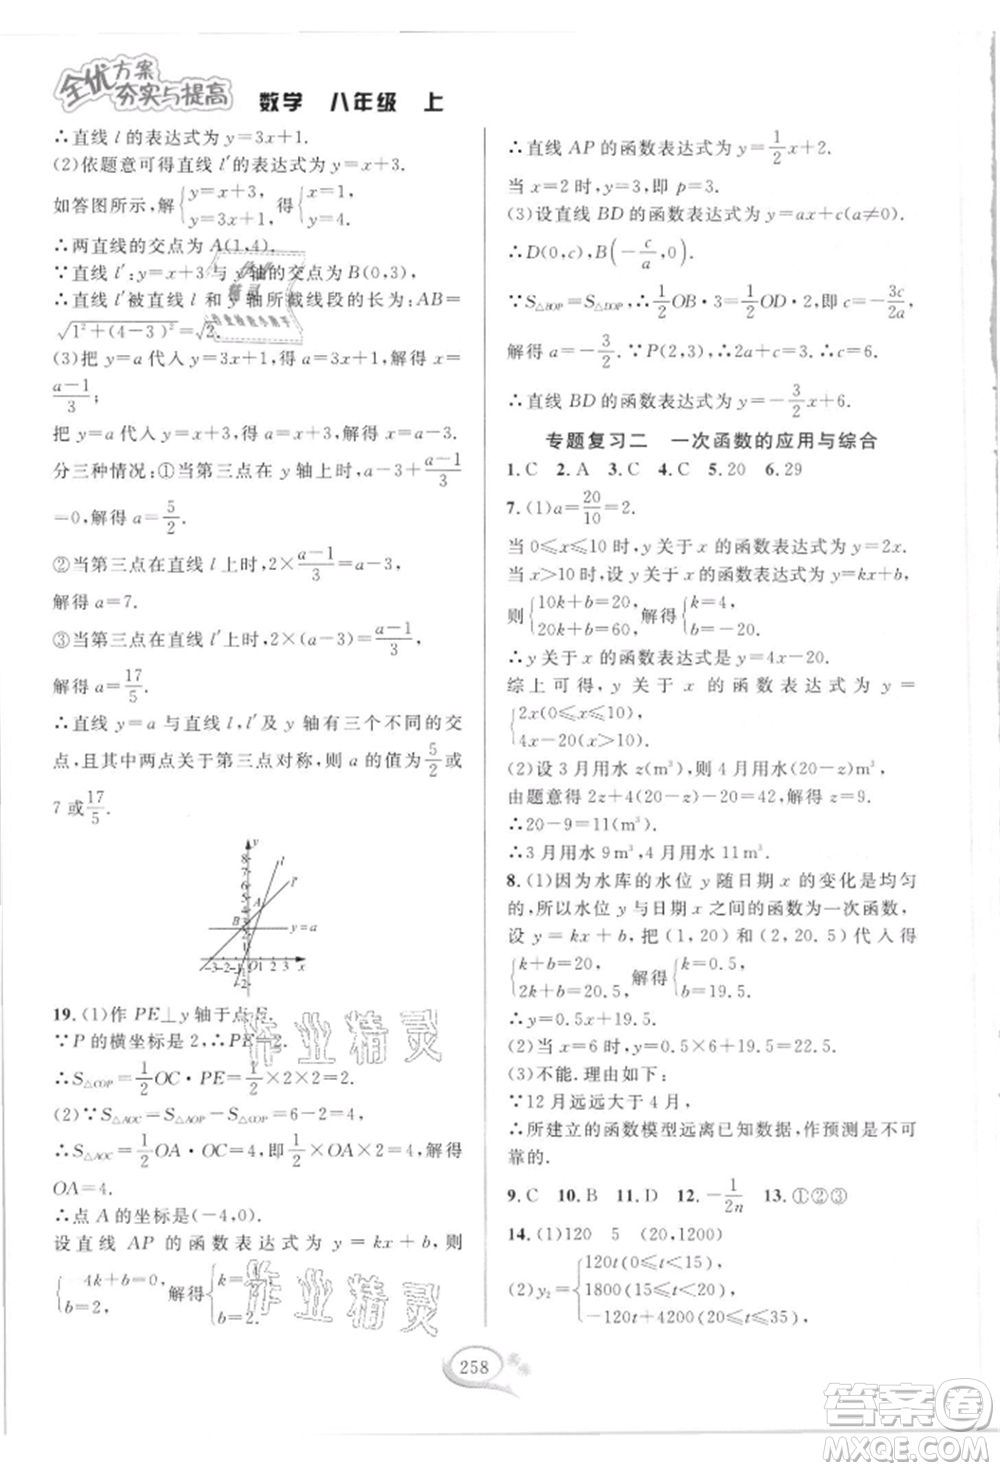 全优方案
夯实与提高
数学 八年级 上
∴直线 l 的表达式为 y=3x+1.
(2)依题意可得直线 l′的表达式为 y=x+3.
如答图所示,解{y=x+3, y=3x+1, 得{x=1, y=4.
∴两直线的交点为 A(1,4).
∵直线 l′:y=x+3 与 y 轴的交点为 B(0,3),
∴直线 l′被直线 l 和 y 轴所截线段的长为:AB=
√(1²+(4-3)²)=√2.
(3)把 y=a 代入 y=3x+1 得,a=3x+1,解得 x=
(a-1)/3;
把 y=a 代入 y=x+3 得,a=x+3,解得 x=a-3.
分三种情况:①当第三点在 y 轴上时,a-3+(a-1)/3
=0,解得 a=5/2.
②当第三点在直线 l 上时,2×(a-1)/3=a-3,
解得 a=7.
③当第三点在直线 l′上时,2×(a-3)=(a-1)/3,
解得 a=17/5.
∴直线 y=a 与直线 l,l′及 y 轴有三个不同的交
点,且其中两点关于第三点对称,则 a 的值为 5/2 或
7 或 17/5.
y
8
7
6
5
4
3
2
1
l
l′
A
B
y=a
-3 -2 -1 O 1 2 3 x
-1
-2
19. (1)作 PE⊥y 轴于点 E.
∵P 的横坐标是 2,∴PE=2.
∴S△COP=1/2 OC·PE=1/2×2×2=2.
(2)∵S△AOC=S△AOP-S△COP=6-2=4,
∴S△AOC=1/2 OA·OC=4,即 1/2×OA×2=4,解得
OA=4.
∴点 A 的坐标是(-4,0).
设直线 AP 的函数表达式为 y=kx+b,则
{-4k+b=0, b=2, 解得{k=1/2, b=2.
∴直线 AP 的函数表达式为 y=1/2 x+2.
当 x=2 时,y=3,即 p=3.
(3)设直线 BD 的函数表达式为 y=ax+c(a≠0).
∴D(0,c),B(-c/a,0).
∵S△BOP=S△DOP,∴1/2 OB·3=1/2 OD·2,即 c=-3c/2a,
解得 a=-3/2.∵P(2,3),∴2a+c=3.∴c=6.
∴直线 BD 的函数表达式为 y=-3/2 x+6.
专题复习二 一次函数的应用与综合
1. C 2. A 3. C 4. C 5. 20 6. 29
7. (1)a=20/10=2.
当 0≤x≤10 时,y 关于 x 的函数表达式为 y=2x.
当 x>10 时,设 y 关于 x 的函数表达式为 y=kx+b,
则{10k+b=20, 20k+b=60, 解得{k=4, b=-20.
∴y 关于 x 的函数表达式是 y=4x-20.
综上可得,y 关于 x 的函数表达式为 y=
{2x(0≤x≤10), 4x-20(x>10).
(2)设 3 月用水 z(m³),则 4 月用水(20-z)(m³),
由题意得 2z+4(20-z)-20=42,解得 z=9.
∴20-9=11(m³).
∴3 月用水 9 m³,4 月用水 11 m³.
8. (1)因为水库的水位 y 随日期 x 的变化是均匀
的,所以水位 y 与日期 x 之间的函数为一次函数,
设 y=kx+b,把(1,20)和(2,20.5)代入得
{k+b=20, 2k+b=20.5, 解得{k=0.5, b=19.5.
∴y=0.5x+19.5.
(2)当 x=6 时,y=0.5×6+19.5=22.5.
(3)不能.理由如下:
∵12 月远远大于 4 月,
∴所建立的函数模型远离已知数据,作预测是不可
靠的.
9. C 10. B 11. D 12. -1/2n 13. ①②③
14. (1)120 5 (20,1200)
(2)y₂={120t(0≤t<15), 1800(15≤t<20), -120t+4200(20≤t≤35).
258
作业精灵
作业精灵
答案卷
MXQE.COM